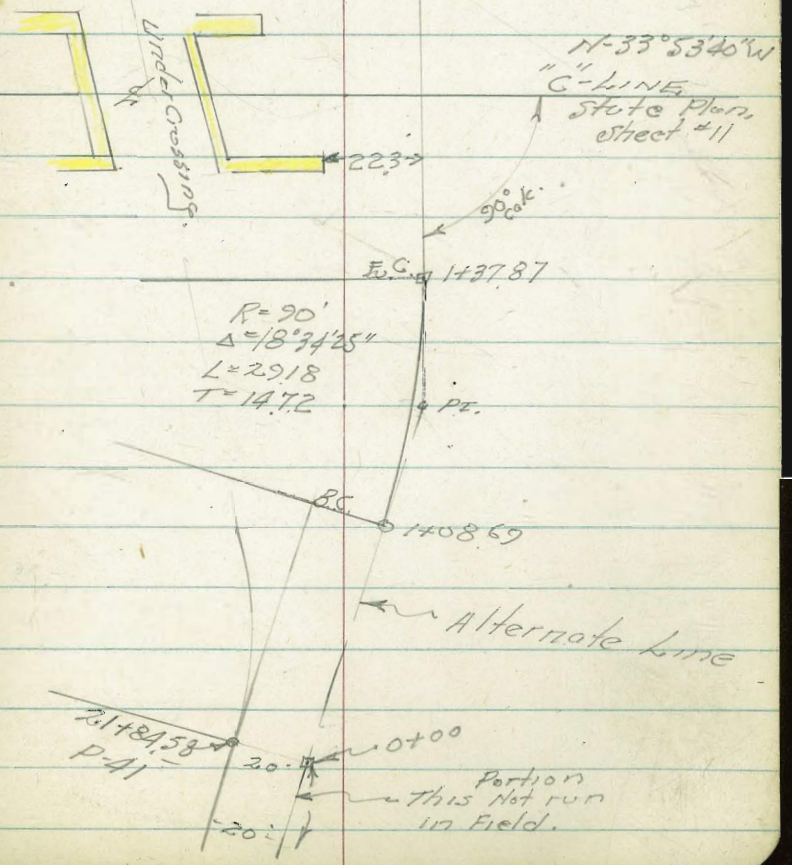 Under Crossing.
N-33°53'40"W
"C"-LINE
State Plan,
Sheet #11
22.3
90° calc.
E.C. 1+37.87
R=90'
Δ=18°34'25"
L=29.18
T=14.72
P.I.
B.C.
1+08.69
Alternate Line
21+84.58
P-41
0+00
20.
Portion
This Not run
in Field.
20.